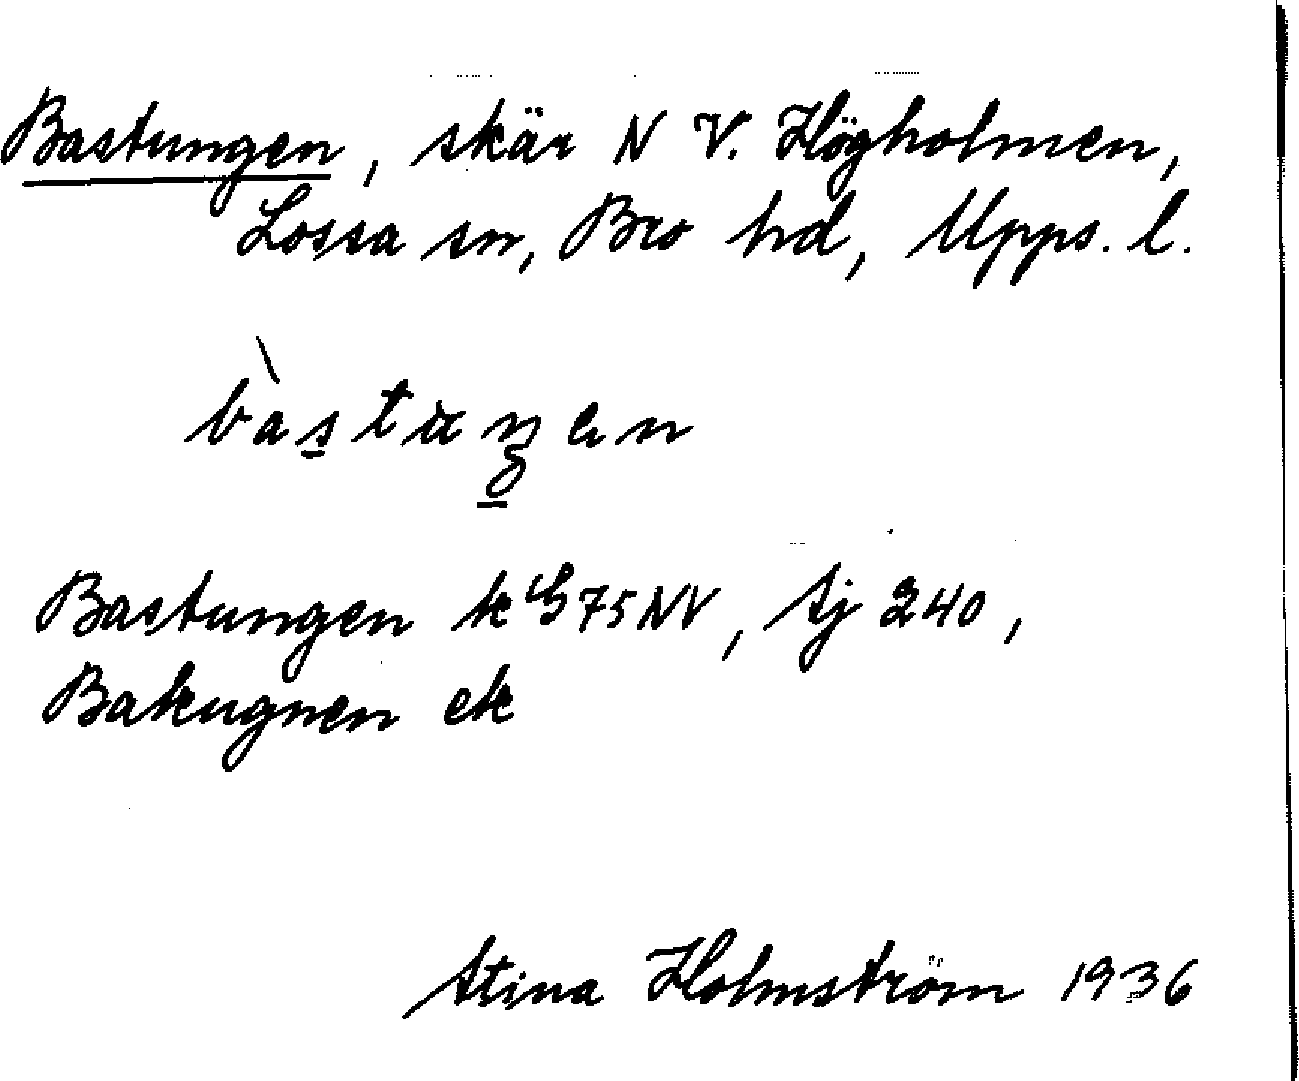 Bastungen, skär N V. Högholmen,
Lossa sn, Bro hd, Upps. l.
bàstuŋen
Bastungen k 75 NV, Sj 240,
Bakugnen ek
Stina Holmström 1936